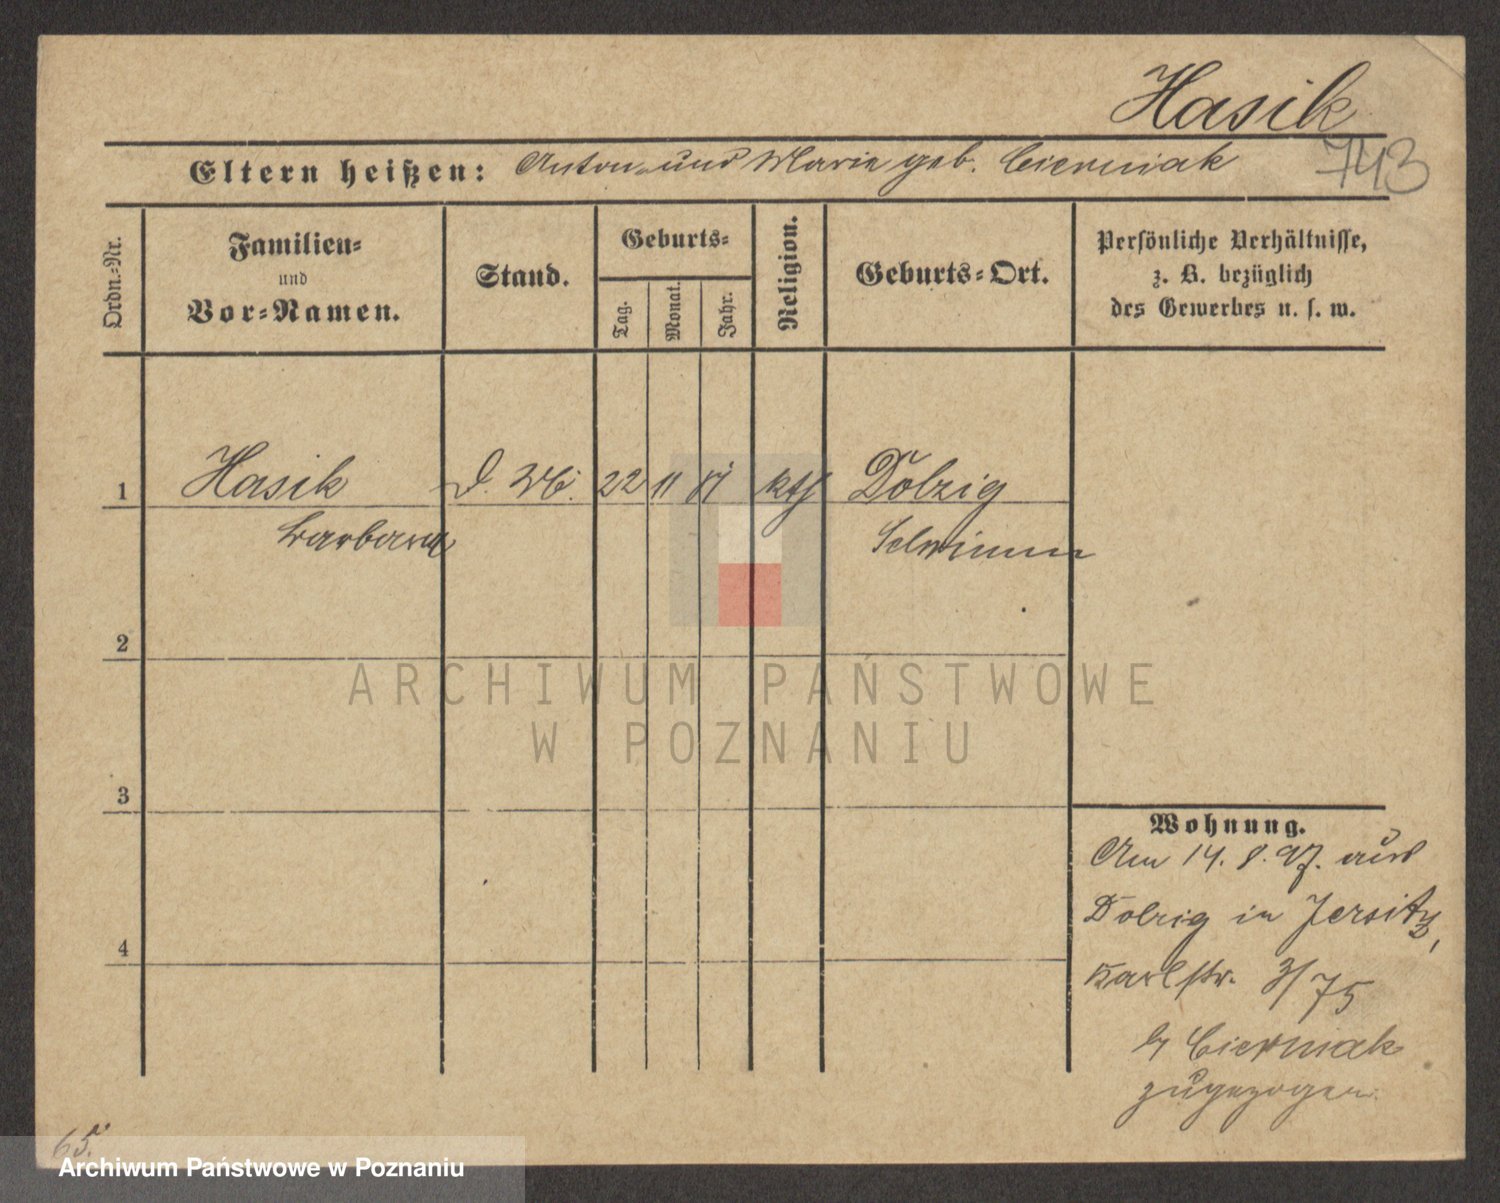 Hasik
743
Eltern heißen: Anton und Marie geb. Cierniak
Ordn.=Nr.
Familien=
und
Vor=Namen.
Stand.
Geburts=
Tag.
Monat.
Jahr.
Religion.
Geburts=Ort.
Persönliche Verhältnisse,
z. B. bezüglich
des Gewerbes u. s. w.
1 Hasik 22 11 kth Dolzig
Barbara Schrimm
2
3
4
Wohnung.
Am 14. 8. 97. aus
Dolzig in Jersitz,
Karlstr. 3/75
b/ Cierniak
zugezogen.
65.
ARCHIWUM PAŃSTWOWE
W POZNANIU
Archiwum Państwowe w Poznaniu